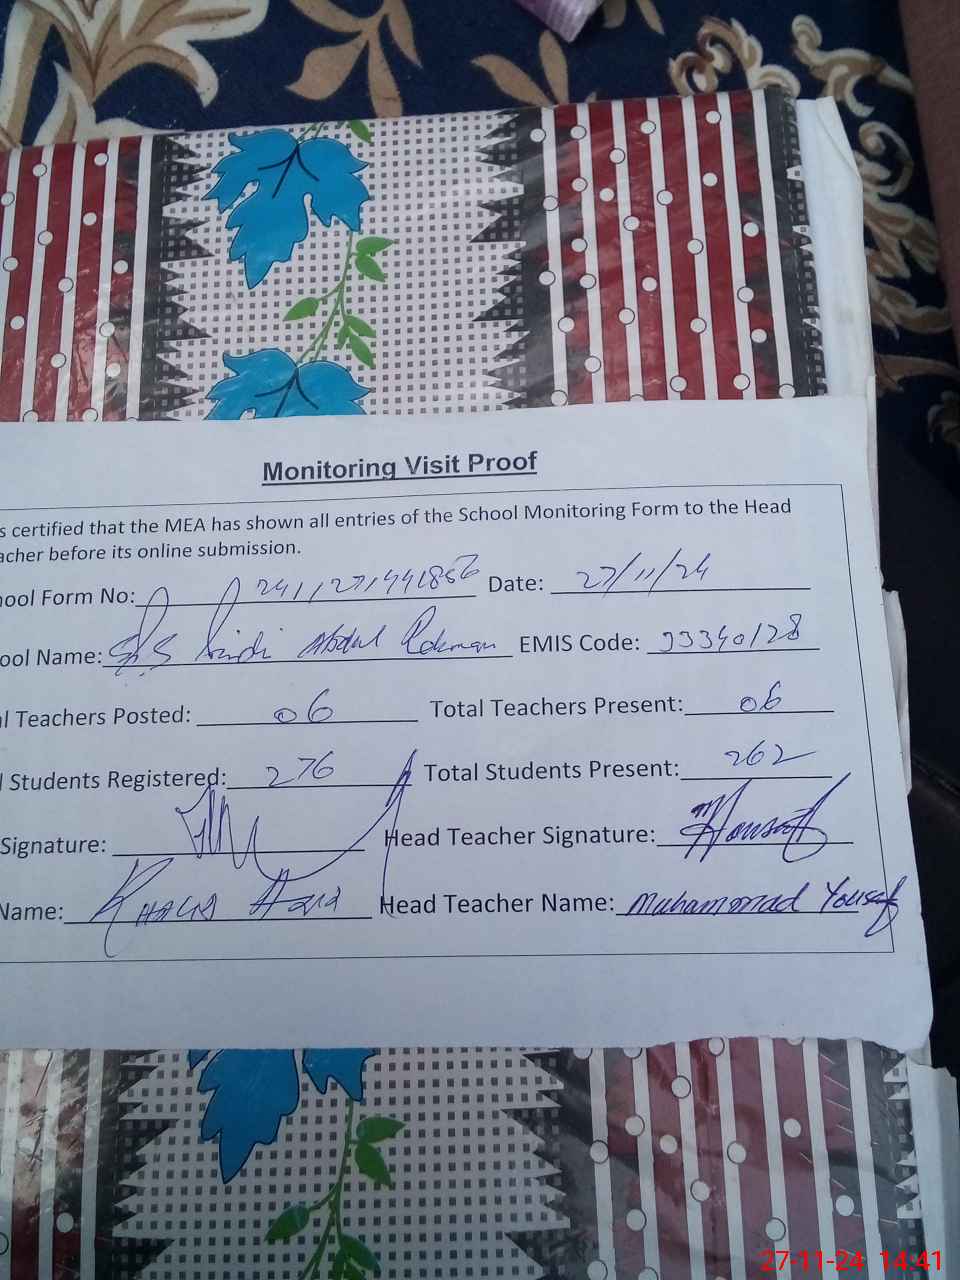 Monitoring Visit Proof
s certified that the MEA has shown all entries of the School Monitoring Form to the Head
acher before its online submission.
ool Form No: Date: 27/11/24
ool Name: Abdul Rehman EMIS Code: 33340128
l Teachers Posted: 06 Total Teachers Present: 06
l Students Registered: 276 Total Students Present: 262
Signature: Head Teacher Signature: Yousaf
Name: Head Teacher Name: Muhammad Yousaf
27-11-24 14:41